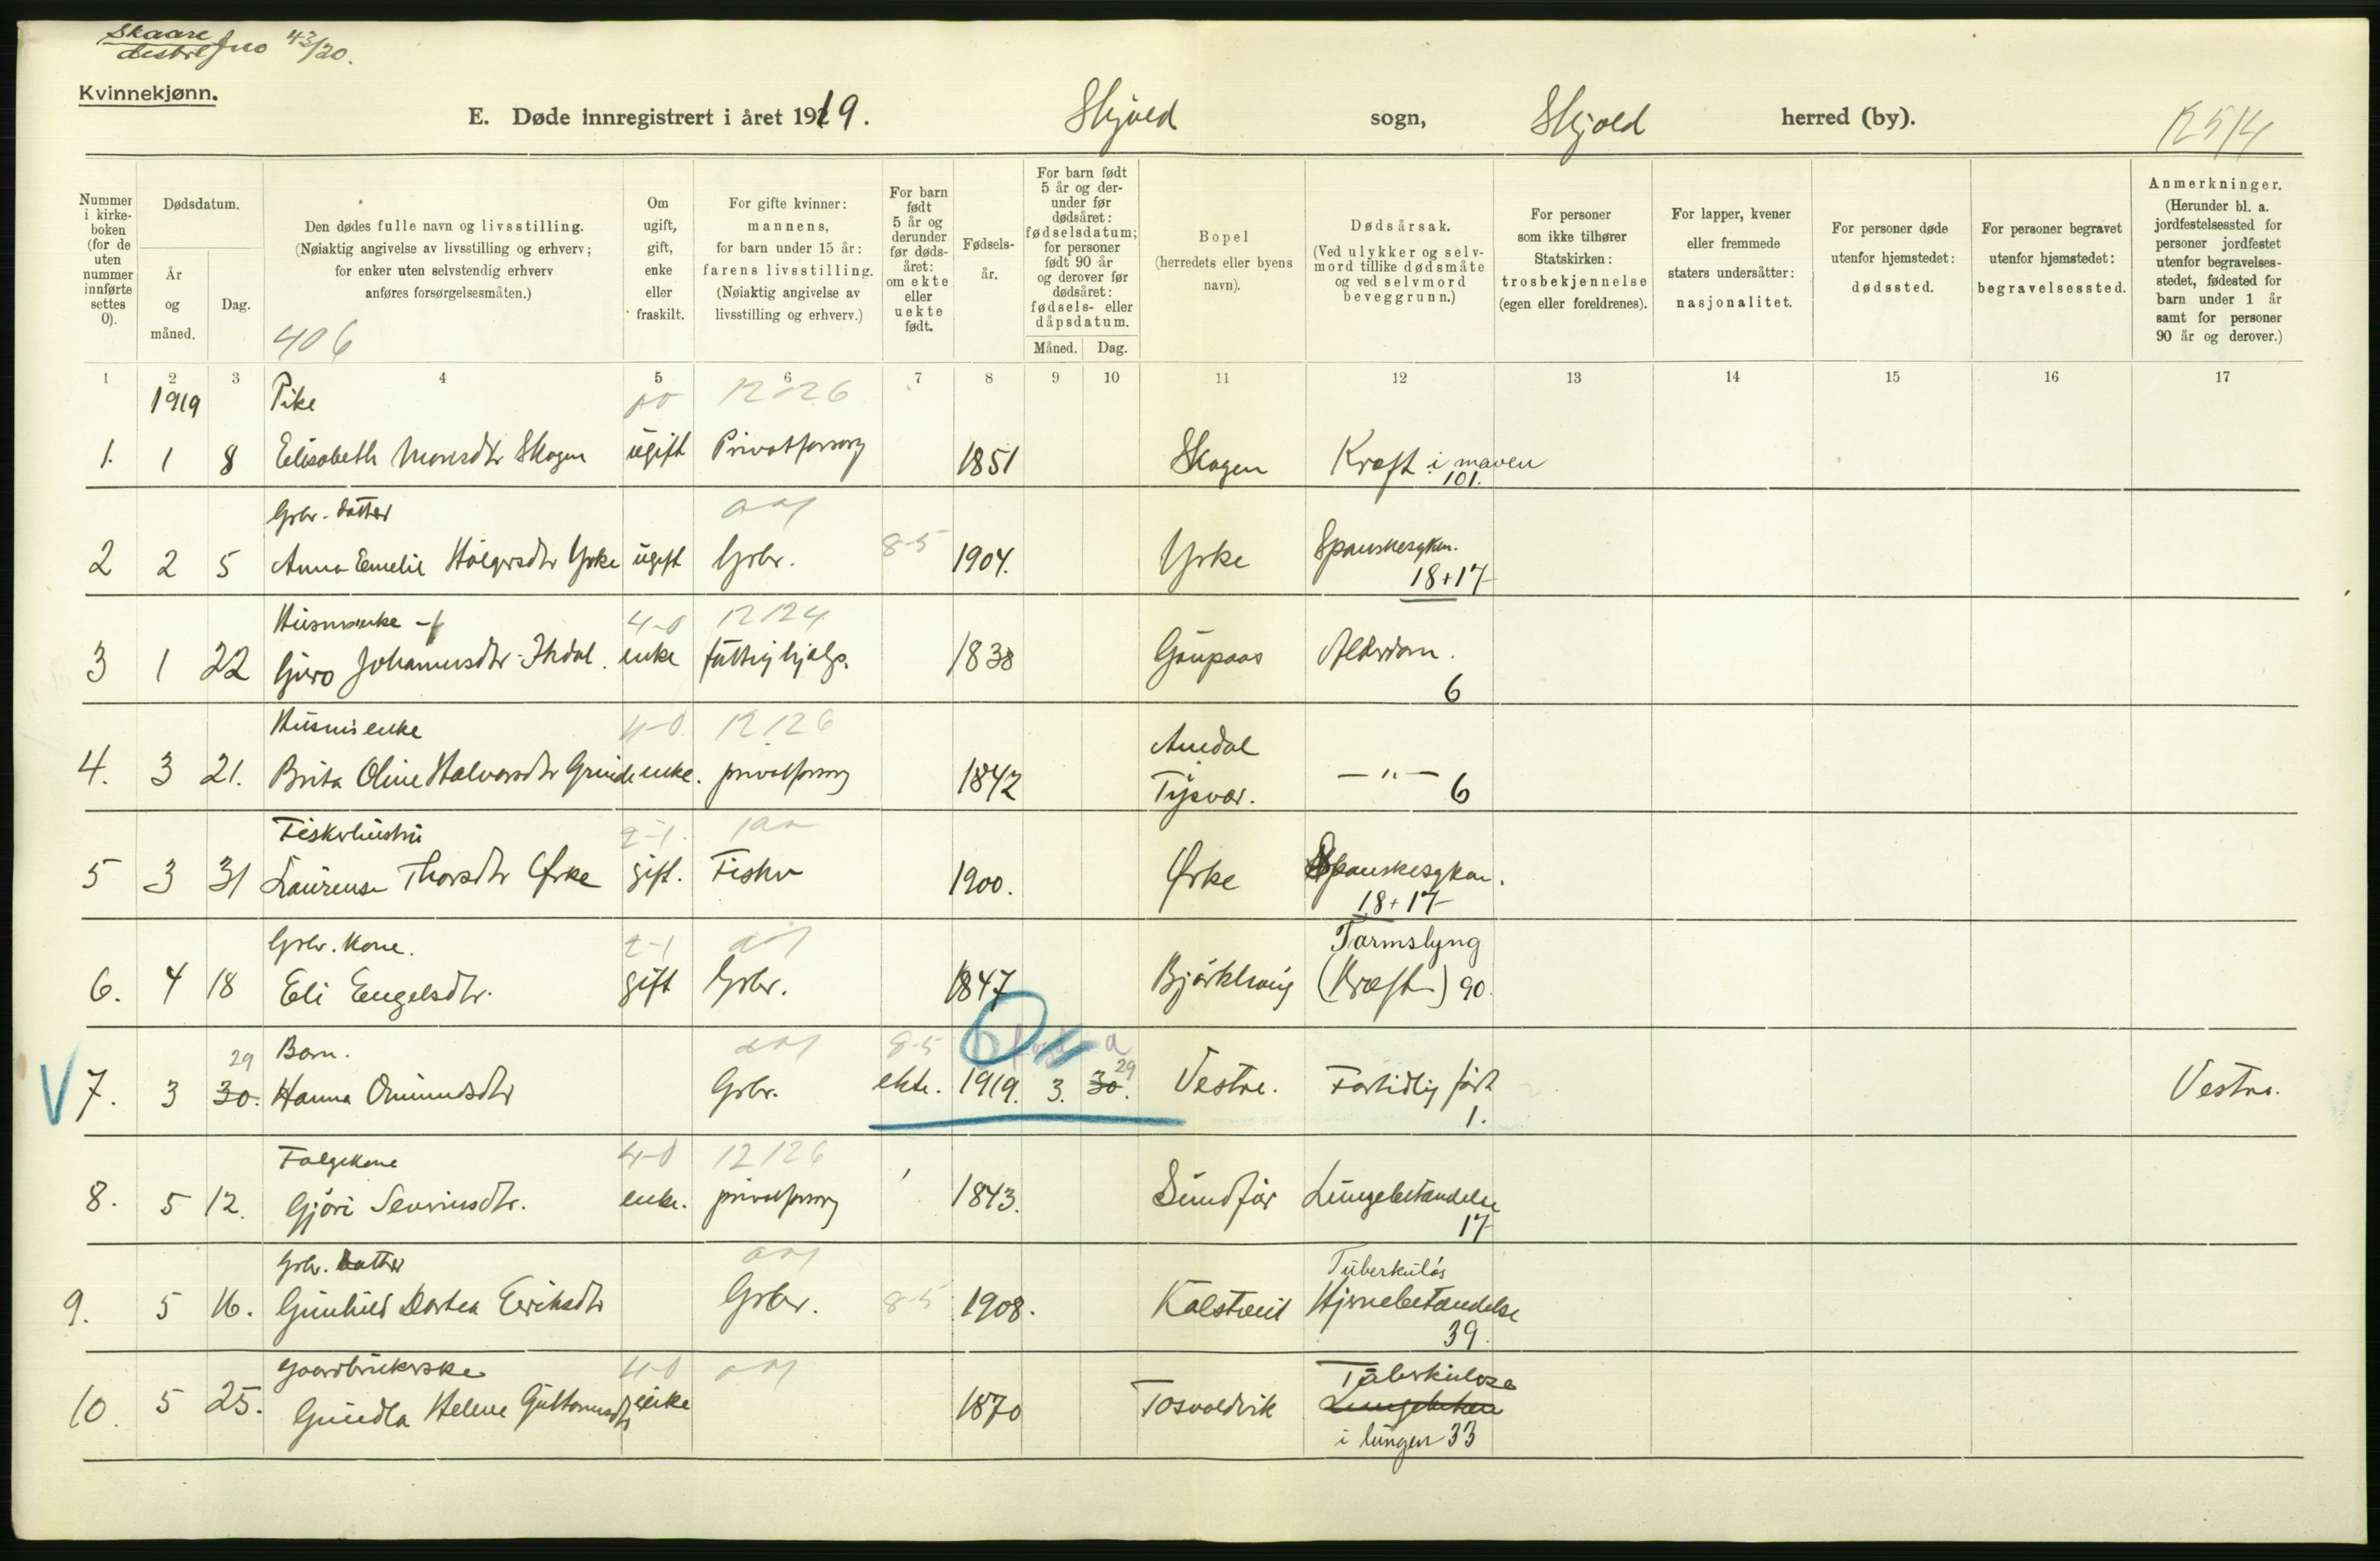 Skaare
distr. Jno 43/20.
Kvinnekjønn.
E. Døde innregistrert i året 1919. Skjold sogn, Skjold herred (by). 1254
Nummer i kirke-boken (for de uten nummer innførte settes 0).
Dødsdatum.
År og måned.
Dag.
Den dødes fulle navn og livsstilling.
(Nøiaktig angivelse av livsstilling og erhverv;
for enker uten selvstendig erhverv
anføres forsørgelsesmåten.)
406
Om ugift, gift, enke eller fraskilt.
For gifte kvinner:
mannens,
for barn under 15 år:
farens livsstilling.
(Nøiaktig angivelse av
livsstilling og erhverv.)
For barn født 5 år og derunder før døds-året: om ekte eller uekte født.
Fødsels-år.
For barn født 5 år og der-under før dødsåret: fødselsdatum; for personer født 90 år og derover før dødsåret: fødsels- eller dåpsdatum.
Måned. Dag.
Bopel
(herredets eller byens
navn).
Dødsårsak.
(Ved ulykker og selv-
mord tillike dødsmåte
og ved selvmord
beveggrunn.)
For personer
som ikke tilhører
Statskirken:
trosbekjennelse
(egen eller foreldrenes).
For lapper, kvener
eller fremmede
staters undersåtter:
nasjonalitet.
For personer døde
utenfor hjemstedet:
dødssted.
For personer begravet
utenfor hjemstedet:
begravelsessted.
Anmerkninger.
(Herunder bl. a.
jordfestelsessted for
personer jordfestet
utenfor begravelses-
stedet, fødested for
barn under 1 år
samt for personer
90 år og derover.)
1 2 3 4 5 6 7 8 9 10 11 12 13 14 15 16 17
1919 Pike 12 26
1. 1 8 Elisabeth Monsdtr Skogen ugift Privatforsorg 1851 Skogen Kreft i maven
101.
Grbr. datter
2 2 5 Anna Emelie Holgersdtr Yrke ugift Grbr. 8-5 1904. Yrke Spanskesyken.
18+17
Husm.enke 4-0 12 124
3 1 22 Guro Johannesdtr enke fattighjelp. 1838 Gaupaas Alderdom.
6
Husm's enke 4-0 12 126
4. 3 21. Brita Oline Halvorsdtr Grinde enke. privatforsorg 1842 Amdal
Tysvær. —"— 6
Fiskerhustru 2-1.
5 3 31 Laurense Thorsdtr Yrke gift. Fisker 1900. Yrke Spanskesyken.
18+17
Grbr. Kone. 2-1 Tarmslyng
6. 4 18 Eli Engelsdtr. gift Grbr. 1847 (Kreft) 90.
29 Barn. 8-5
V 7. 3 30. Hanna Omundsdtr Grbr. ekte. 1919. 3. 30. 29 Vestre. Fortidlig født Vestre.
1.
Folgekone 4-0 12 126
8. 5 12. Gjøri Severinsdtr. enke. privatforsorg 1843. Sundfør Lungebetændelse
17
Grbr. datter Tuberkuløs
9. 5 16. Gunhild Dortea Eeriksdtr Grbr. 8-5 1908. Kalstveit Hjernebetændelse
39.
Gaardbrukerske 4-0 Tuberkulose
10. 5 25. Gundla Helene Guttormsdtr enke 1870 Tosvoldvik
i lungen 33